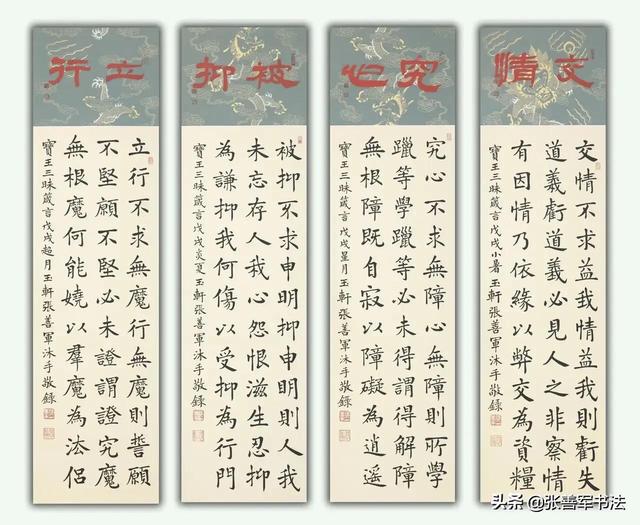 交情
交情不求益我情益我則虧失
道義虧道義必見人之非察情
有因情乃依緣以弊交為資糧
寶王三昧箴言戊戌小暑玉軒張善軍沐手敬錄
究心
究心不求無障心無障則所學
躐等學躐等必未得謂得解障
無根障既自寂以障礙為逍遥
寶王三昧箴言戊戌星月玉軒張善軍沐手敬錄
被抑
被抑不求申明抑申明則人我
未忘存人我心怨恨滋生忍抑
為謙抑我何傷以受抑為行門
寶王三昧箴言戊戌炎夏玉軒張善軍沐手敬錄
立行
立行不求無魔行無魔則誓願
不堅願不堅必未證謂證究魔
無根魔何能嬈以羣魔為法侶
寶王三昧箴言戊戌超月玉軒張善軍沐手敬錄
头条 @张善军书法